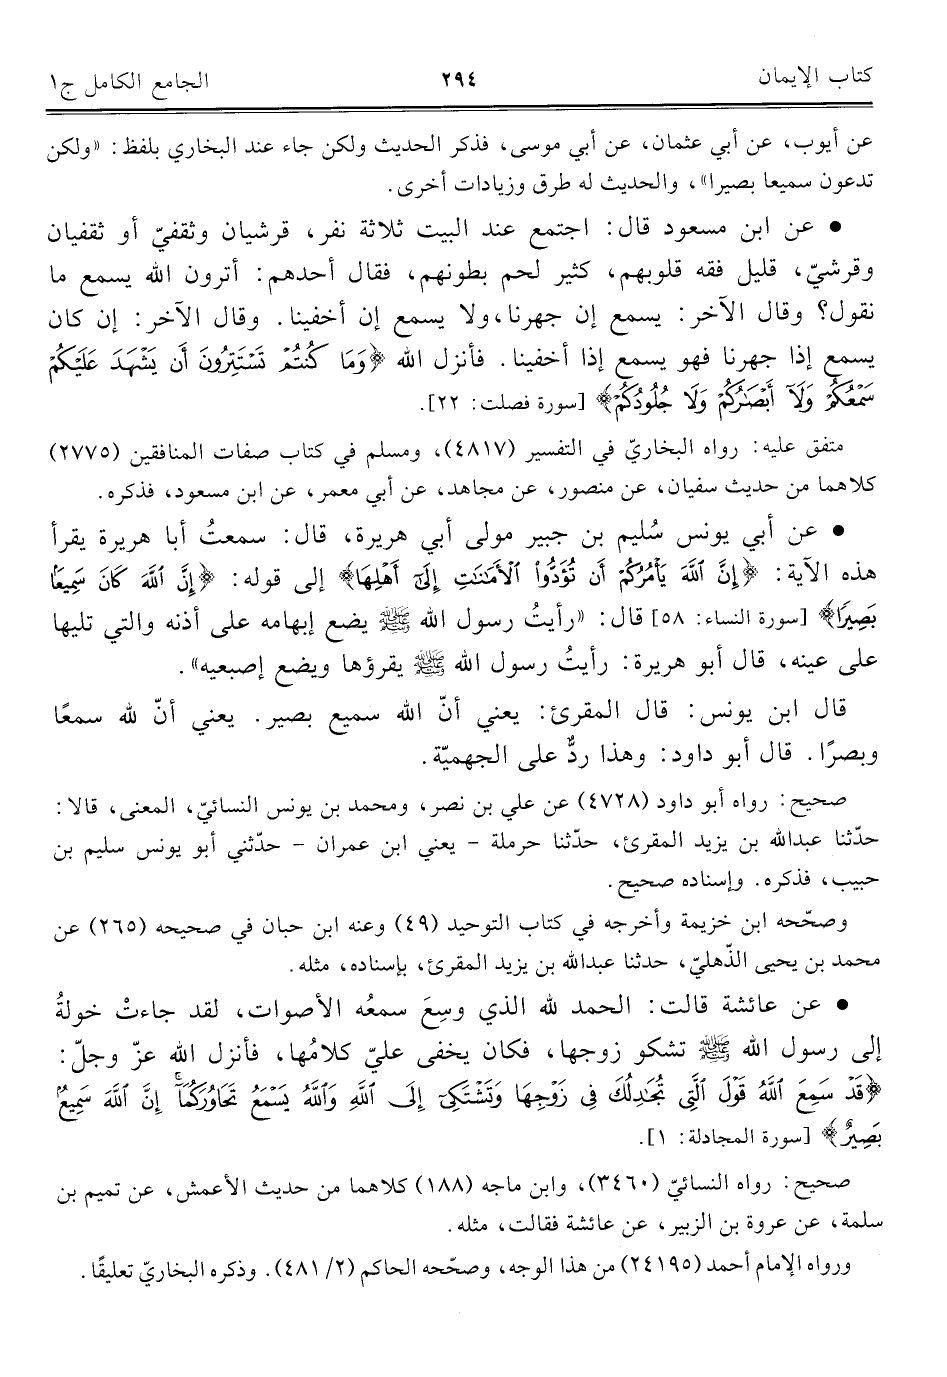 كتاب الإيمان ٢٩٤ الجامع الكامل ج١
عن أيوب، عن أبي عثمان، عن أبي موسى، فذكر الحديث ولكن جاء عند البخاري بلفظ: «ولكن
تدعون سميعا بصيرا»، والحديث له طرق وزيادات أخرى.
• عن ابن مسعود قال: اجتمع عند البيت ثلاثة نفر، قرشيان وثقفيّ أو ثقفيان
وقرشيّ، قليل فقه قلوبهم، كثير لحم بطونهم، فقال أحدهم: أترون الله يسمع ما
نقول؟ وقال الآخر: يسمع إن جهرنا،ولا يسمع إن أخفينا. وقال الآخر: إن كان
يسمع إذا جهرنا فهو يسمع إذا أخفينا. فأنزل الله ﴿وَمَا كُنتُمْ تَسْتَتِرُونَ أَن يَشْهَدَ عَلَيْكُمْ
سَمْعُكُمْ وَلَآ أَبْصَٰرُكُمْ وَلَا جُلُودُكُمْ﴾ [سورة فصلت: ٢٢].
متفق عليه: رواه البخاريّ في التفسير (٤٨١٧)، ومسلم في كتاب صفات المنافقين (٢٧٧٥)
كلاهما من حديث سفيان، عن منصور، عن مجاهد، عن أبي معمر، عن ابن مسعود، فذكره.
• عن أبي يونس سُليم بن جبير مولى أبي هريرة، قال: سمعتُ أبا هريرة يقرأ
هذه الآية: ﴿إِنَّ ٱللَّهَ يَأْمُرُكُمْ أَن تُؤَدُّوا۟ ٱلْأَمَٰنَٰتِ إِلَىٰٓ أَهْلِهَا﴾ إلى قوله: ﴿إِنَّ ٱللَّهَ كَانَ سَمِيعًۢا
بَصِيرًا﴾ [سورة النساء: ٥٨] قال: «رأيتُ رسول الله ﷺ يضع إبهامه على أذنه والتي تليها
على عينه، قال أبو هريرة: رأيتُ رسول الله ﷺ يقرؤها ويضع إصبعيه».
قال ابن يونس: قال المقرئ: يعني أنّ الله سميع بصير. يعني أنّ لله سمعًا
وبصرًا. قال أبو داود: وهذا ردٌّ على الجهميّة.
صحيح: رواه أبو داود (٤٧٢٨) عن علي بن نصر، ومحمد بن يونس النسائيّ، المعنى، قالا:
حدّثنا عبدالله بن يزيد المقرئ، حدّثنا حرملة - يعني ابن عمران - حدّثني أبو يونس سليم بن
حبيب، فذكره. وإسناده صحيح.
وصحّحه ابن خزيمة وأخرجه في كتاب التوحيد (٤٩) وعنه ابن حبان في صحيحه (٢٦٥) عن
محمد بن يحيى الذّهليّ، حدثنا عبدالله بن يزيد المقرئ، بإسناده، مثله.
• عن عائشة قالت: الحمد لله الذي وسِعَ سمعُه الأصوات، لقد جاءتْ خولةُ
إلى رسول الله ﷺ تشكو زوجها، فكان يخفى عليّ كلامُها، فأنزل الله عزّ وجلّ:
﴿قَدْ سَمِعَ ٱللَّهُ قَوْلَ ٱلَّتِى تُجَٰدِلُكَ فِى زَوْجِهَا وَتَشْتَكِىٓ إِلَى ٱللَّهِ وَٱللَّهُ يَسْمَعُ تَحَاوُرَكُمَآ ۚ إِنَّ ٱللَّهَ سَمِيعٌۢ
بَصِيرٌ﴾ [سورة المجادلة: ١].
صحيح: رواه النسائيّ (٣٤٦٠)، وابن ماجه (١٨٨) كلاهما من حديث الأعمش، عن تميم بن
سلمة، عن عروة بن الزبير، عن عائشة فقالت، مثله.
ورواه الإمام أحمد (٢٤١٩٥) من هذا الوجه، وصحّحه الحاكم (٢/ ٤٨١). وذكره البخاريّ تعليقًا.